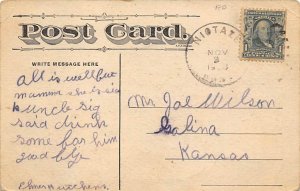 Post Card.
WRITE MESSAGE HERE
NOV
all is well but
mamma she is sick
uncle sig
said drink
some for him
good bye
Mr Joe Wilson
Salina
Kansas